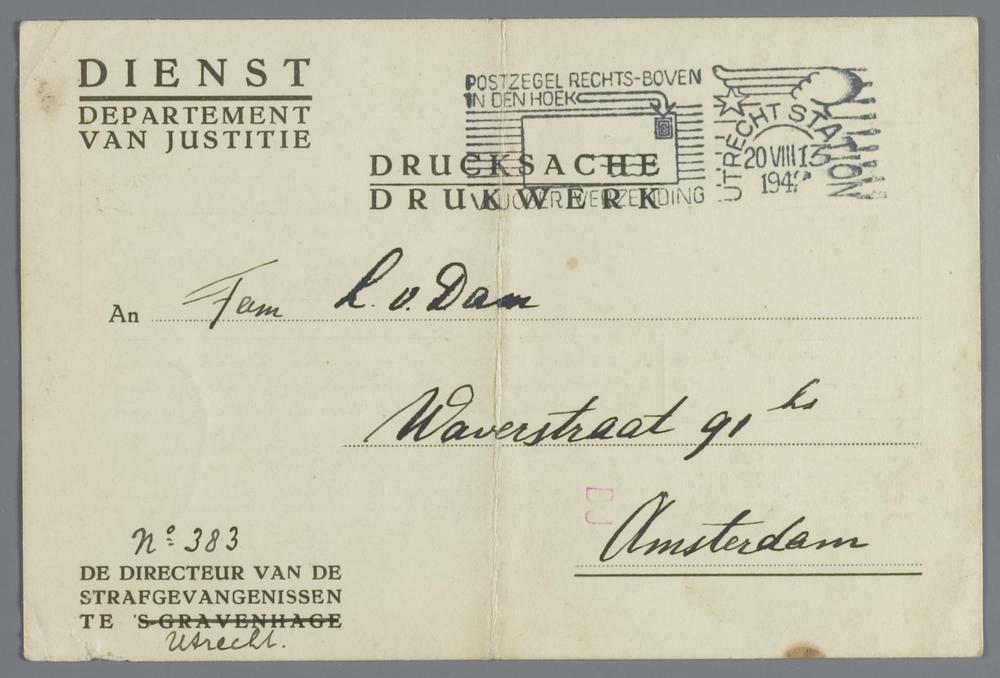 DIENST
DEPARTEMENT
VAN JUSTITIE
POSTZEGEL RECHTS-BOVEN
IN DEN HOEK
UTRECHT STATION
20 VIII 13
194
DRUCKSACHE
DRUKWERK
VERZENDING
An Fam L. v. Dam
Waverstraat 91 hs
Amsterdam
No 383
DE DIRECTEUR VAN DE
STRAFGEVANGENISSEN
TE 'S-GRAVENHAGE
Utrecht.